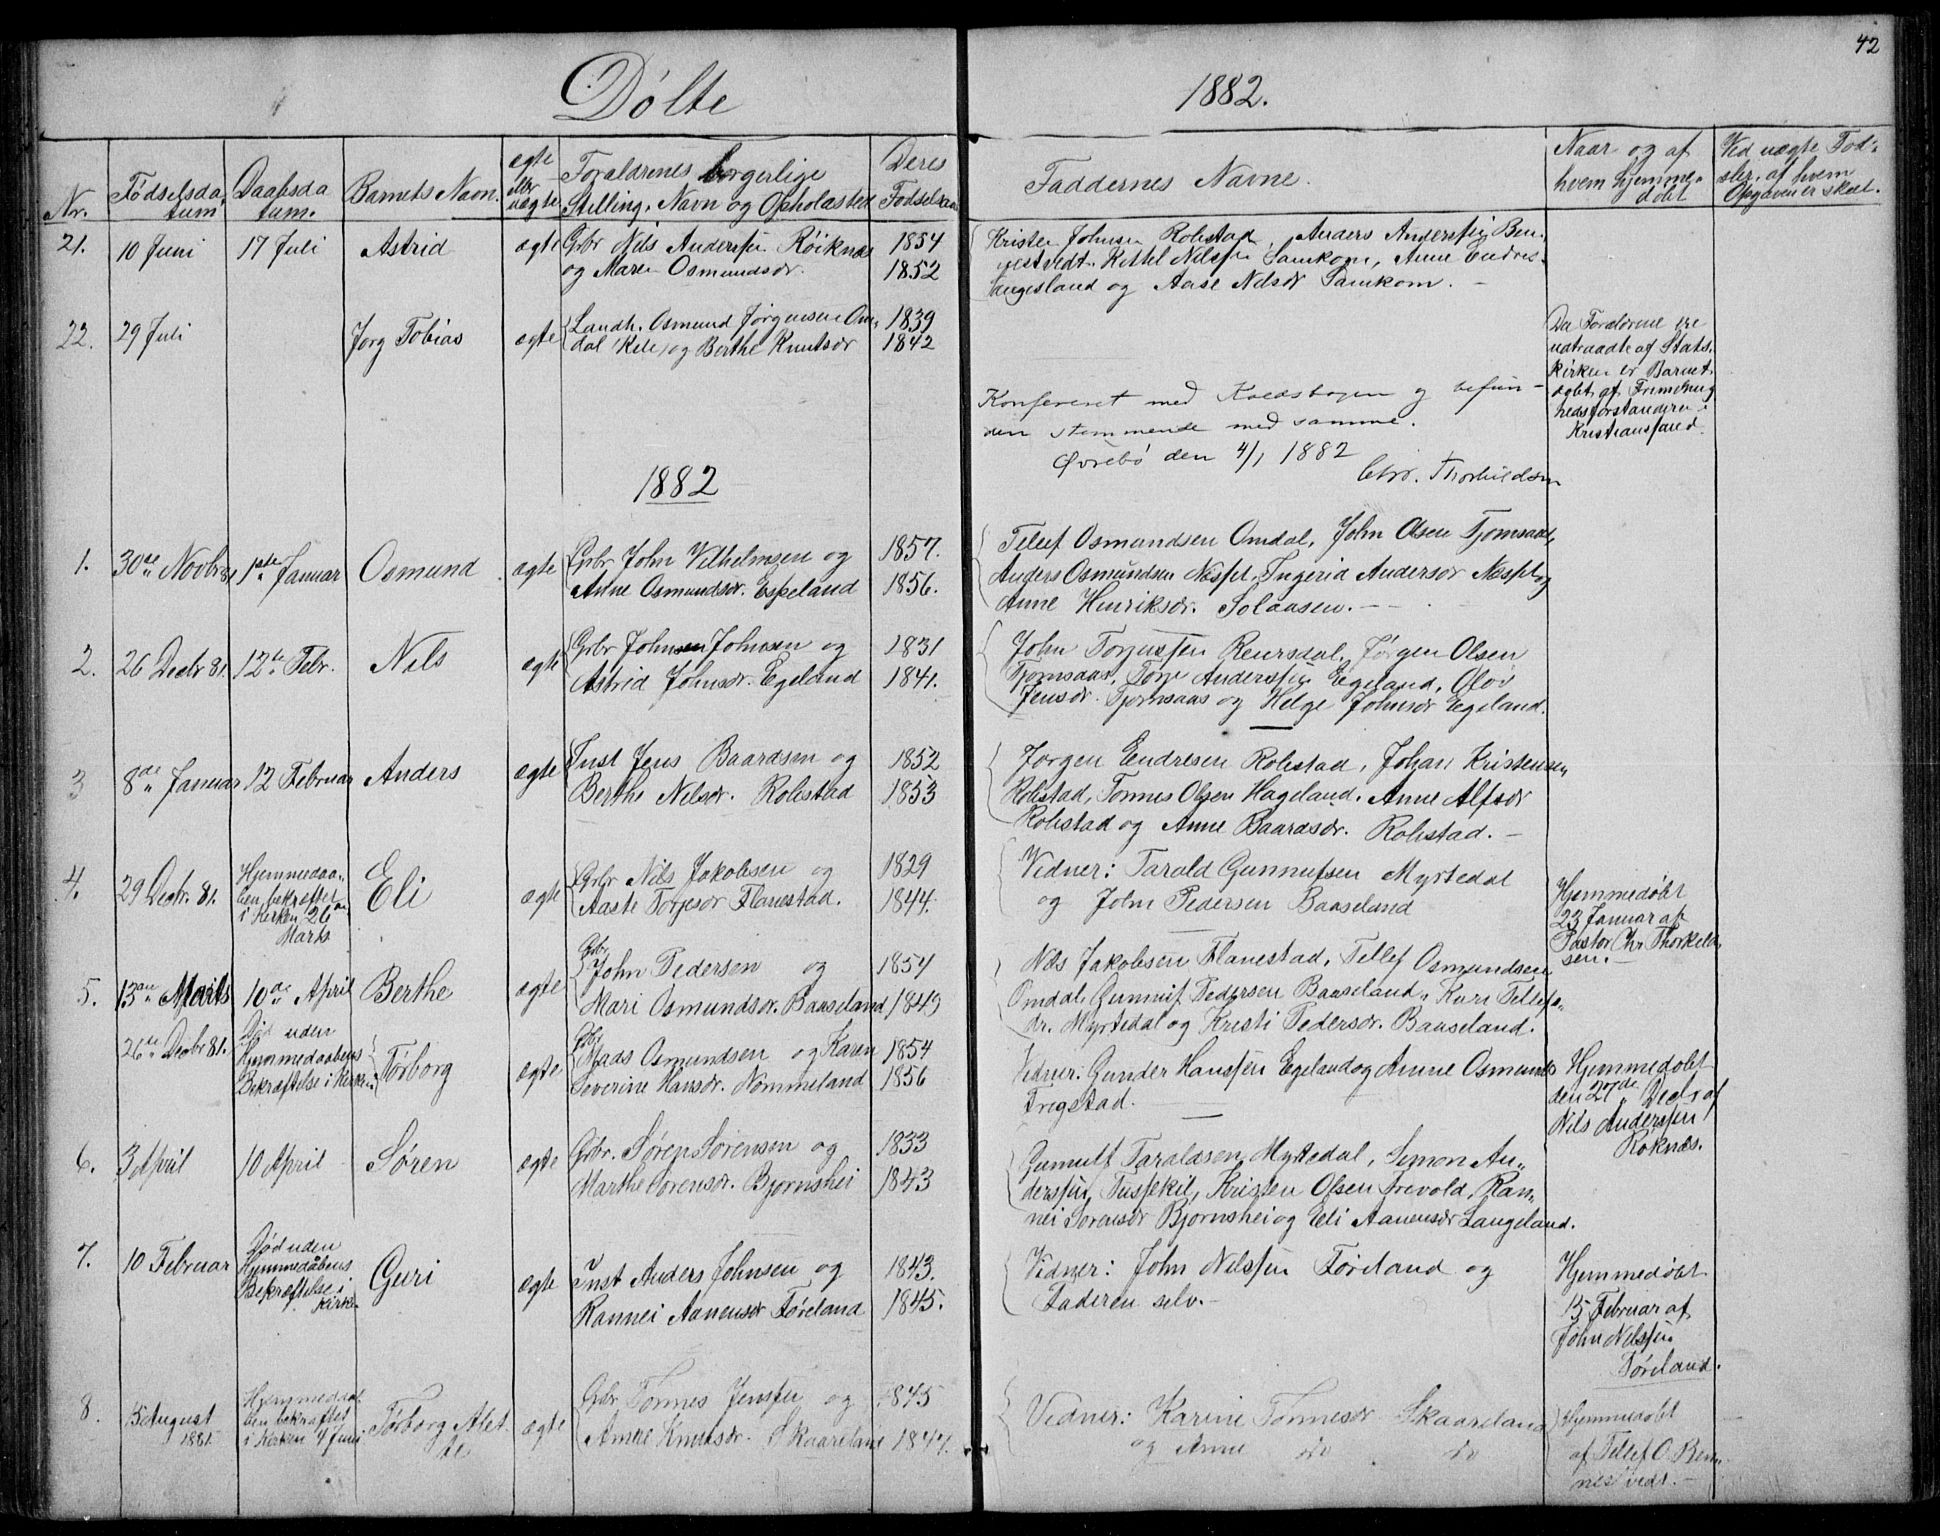 42
Døbte
1882.
Nr.
Fødselsda
tum
Daabsda
tum.
Barnets Navn.
ægte
eller
uægte
Forældrenes borgerlige
Stilling, Navn og Opholdssted
Deres
Fødselsaar
Faddernes Navne.
Naar og af
hvem hjemme-
døbt
Ved uægte Fød-
sler, af hvem
Opgaven er skeet.
21.
10 Juni
17 Juli
Astrid
ægte
Gbr Nils Anderssen Röiknæs
og Maren Osmundsdr.
1854
1852
Kristen Johnsen Robstad, Anders Anderssen Ben-
nestvedt, Kittel Nilssen Samkom, Anne Endres-
Langeland og Aase Nilsdr Samkom. -
22.
29 Juli
Jorg Tobias
ægte
Landh. Osmund Jörgensen Om-
dal (Kile) og Berthe Knutsdr
1839
1842
Da Forældrene ere
udtraadte af Stats-
kirken er Barnet
døbt af Frimenig
hedsforstanderen i
Kristiansand.
Konfereret med Kladdbogen og befun-
den stemmende med samme.
Øvrebö den 4/1 1882
Chr. Thorkildsen
1882
1.
30te Novbr 81
1ste Januar
Osmund
ægte
Gbr John Vilhelmsen og
Anne Osmundsdr. Espeland
1857.
1856.
Tellef Osmundsen Omdal, John Olsen Tjomsaas,
Anders Osmundsen Næset, Ingerid Andersdr Næset og
Anne Henriksdr. Solaasen. - -
2.
26 Decbr 81.
12te Febr.
Nils
ægte
Gbr Johnsen Johnsen og
Astrid Johnsdr. Egeland
1831
1841.
John Torjussen Reiersdal, Jørgen Olsen
Tjomsaas, Torje Anderssen Egeland, Oløv
Jensdr. Tjomsaas og Helge Johnsdr Egeland.
3
8de Januar
12 Februar
Anders
ægte
Inst Jens Baardsen og
Berthe Nilsdr. Robstad
1852
1853
Jørgen Endresen Robstad, Johan Kristensen
Robstad, Tønnes Olsen Hageland, Anne Alfsdr
Robstad og Anne Baardsdr. Robstad. -
4.
29 Decbr. 81.
Hjemmedaa-
ben bekræftet
i Kirken 26
Marts
Eli
ægte
Gbr Nils Jakobsen og
Aaste Torjesdr Flanestad.
1829
1844.
Vidner: Tarald Gunnufsen Myrtedal
og John Pedersen Baaseland
Hjemmedøbt
23 Januar af
Pastor Chr Thorkild-
sen. -
5.
13 Marts
10de April
Berthe
ægte
Gbr
John Pedersen og
Mari Osmundsdr. Baaseland
1857
1843
Nils Jakobsen Flanestad, Tellef Osmundsen
Omdal, Gunnuf Pedersen Baaseland, Kari Tellefs-
dr. Myrtedal og Kristi Pedersdr. Baaseland.
26de Decbr 81.
Død uden
Hjemmedaabens
Bekræftelse i Kirken
Torborg
ægte
Gbr
Mads Osmundsen og Karen
Severine Hansdr. Nommeland
1854
1856
Vidner: Gunder Hanssen Egeland og Anne Osmundsdr
Fregstad.
Hjemmedøbt
den 27de Decbr af
Nils Anderssen
Röknæs.
6.
3 April
10 April
Søren
ægte
Gbr. Søren Sørensen og
Marthe Sorensdr. Bjornshei
1833
1843
Gunnulf Taraldsen Myrtedal, Simon An-
derssen, Tussekil, Kristen Olsen Irevold, Ran-
nei Sorensdr Bjornshei og Eli Aanensdr Langeland.
7.
10 Februar
Død uden
Hjemmedåbens
Bekræftelse i
Kirken
Guri
ægte
Inst Anders Johnsen og
Rannei Aanensdr Føreland
1843.
1845.
Vidner: John Nilssen Føreland og
Faderen selv. -
Hjemmedøbt
15 Februar af
John Nilssen
Føreland.
8.
15 August
1881.
Hjemmedaa-
ben bekræftet
i Kirken 4 Juni
Torborg Alet-
te
ægte
Gbr Tønnes Jenssen og
Anne Knutsdr. Skaareland
1845
1847.
Vidner: Karine Tønnesdr Skaareland
og Anne do do
Hjemmedøbt
af Tellef O. Ben-
nestvedt. -